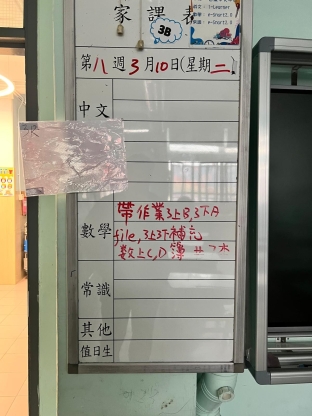 家課表
3B
第八週3月10日(星期二)
中文
數學
帶作業3上B,3下A
file,3上3下補充
數上C,D簿
常識
其他
值日生